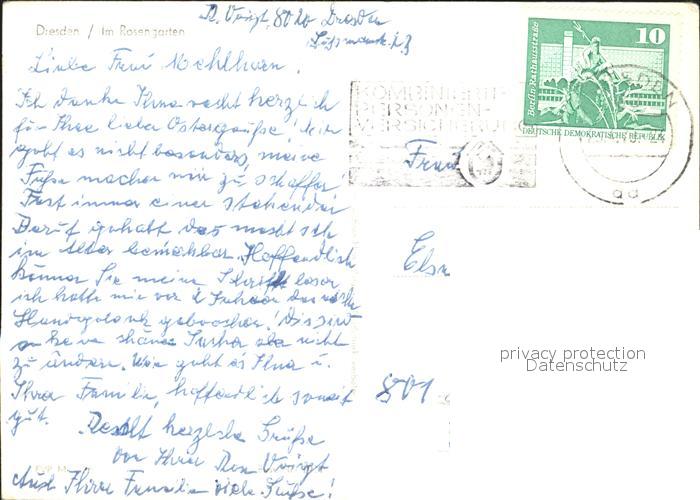 D. Voigt, 8020 Dresden
Dresden / Im Rosengarten
Liebe Frau Mehlhorn,
Ich danke Ihnen recht herzlich
für Ihre lieben Ostergrüße! Mir
geht es nicht besonders, meine
Füße machen mir zu schaffen
Fast immer einen stehenden
Beruf gehabt das macht sich
im Alter bemerkbar. Hoffendlich
können Sie meine Schrift lesen
ich hatte mir vor 2 Jahren das rechte
Handgelenk gebrochen! Dis sind
keine schöne Sache aber nicht
zu ändern. Wie geht es Ihnen u.
Ihrer Familie, hoffendlich soweit
gut.
Recht herzliche Grüße
von Ihrer Voigt
Auch Ihrer Familie viele Grüße!
10
Berlin-Rathausstraße
DEUTSCHE DEMOKRATISCHE REPUBLIK
KOMBINIERTE
PERSONEN-
VERSICHERUNG
DRESDEN
ad
Frau
Elsn
801
privacy protection
Datenschutz